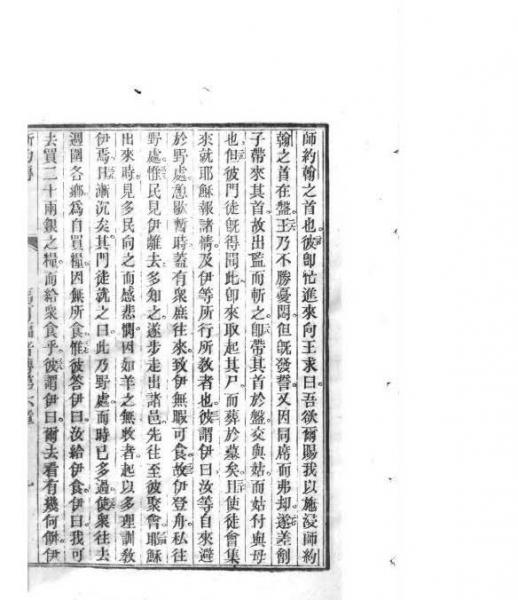 師約翰之首也彼卽忙進來向王求曰吾欲爾賜我以施浸師約
翰之首在盤王乃不勝憂悶但旣發誓又因同席而弗却遂差劊
子帶來其首故出監而斬之卽帶其首於盤交與姑而姑付與母
也但彼門徒旣得聞此卽來取起其尸而葬於墓矣且使徒會集
來就耶穌報諸情及伊等所行所教者也彼謂伊曰汝等自來避
於野處憩歇暫時蓋有衆庶往來致伊無暇可食故伊登舟私往
野處惟民見伊離去多知之遂步走出諸邑先往至彼聚會耶穌
出來時見多民向之而感悲憫因如羊之無牧者起以多理訓教
伊焉日漸沉矣其門徒就之曰此乃野處而時已多過使衆往去
週圍各鄉爲自買糧因無所食惟彼答伊曰汝給伊食伊曰我可
去買二十兩銀之糧而給衆食乎彼謂伊曰爾去看有幾何餅伊